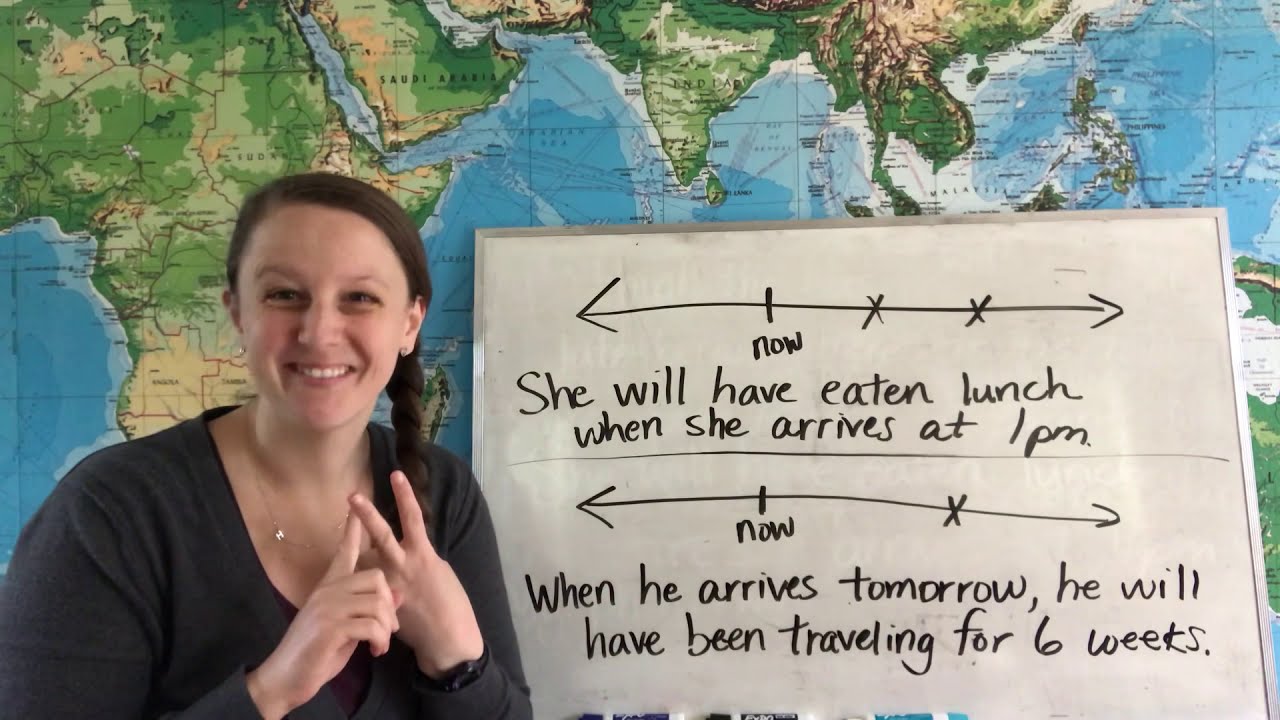 SAUDI ARABIA
INDIA
SUDAN
ARABIAN SEA
BAY OF BENGAL
SRI LANKA
PHILIPPINES
MALAYSIA
ANGOLA
now
She will have eaten lunch
when she arrives at 1pm.
now
When he arrives tomorrow, he will
have been traveling for 6 weeks.
H
EXPO